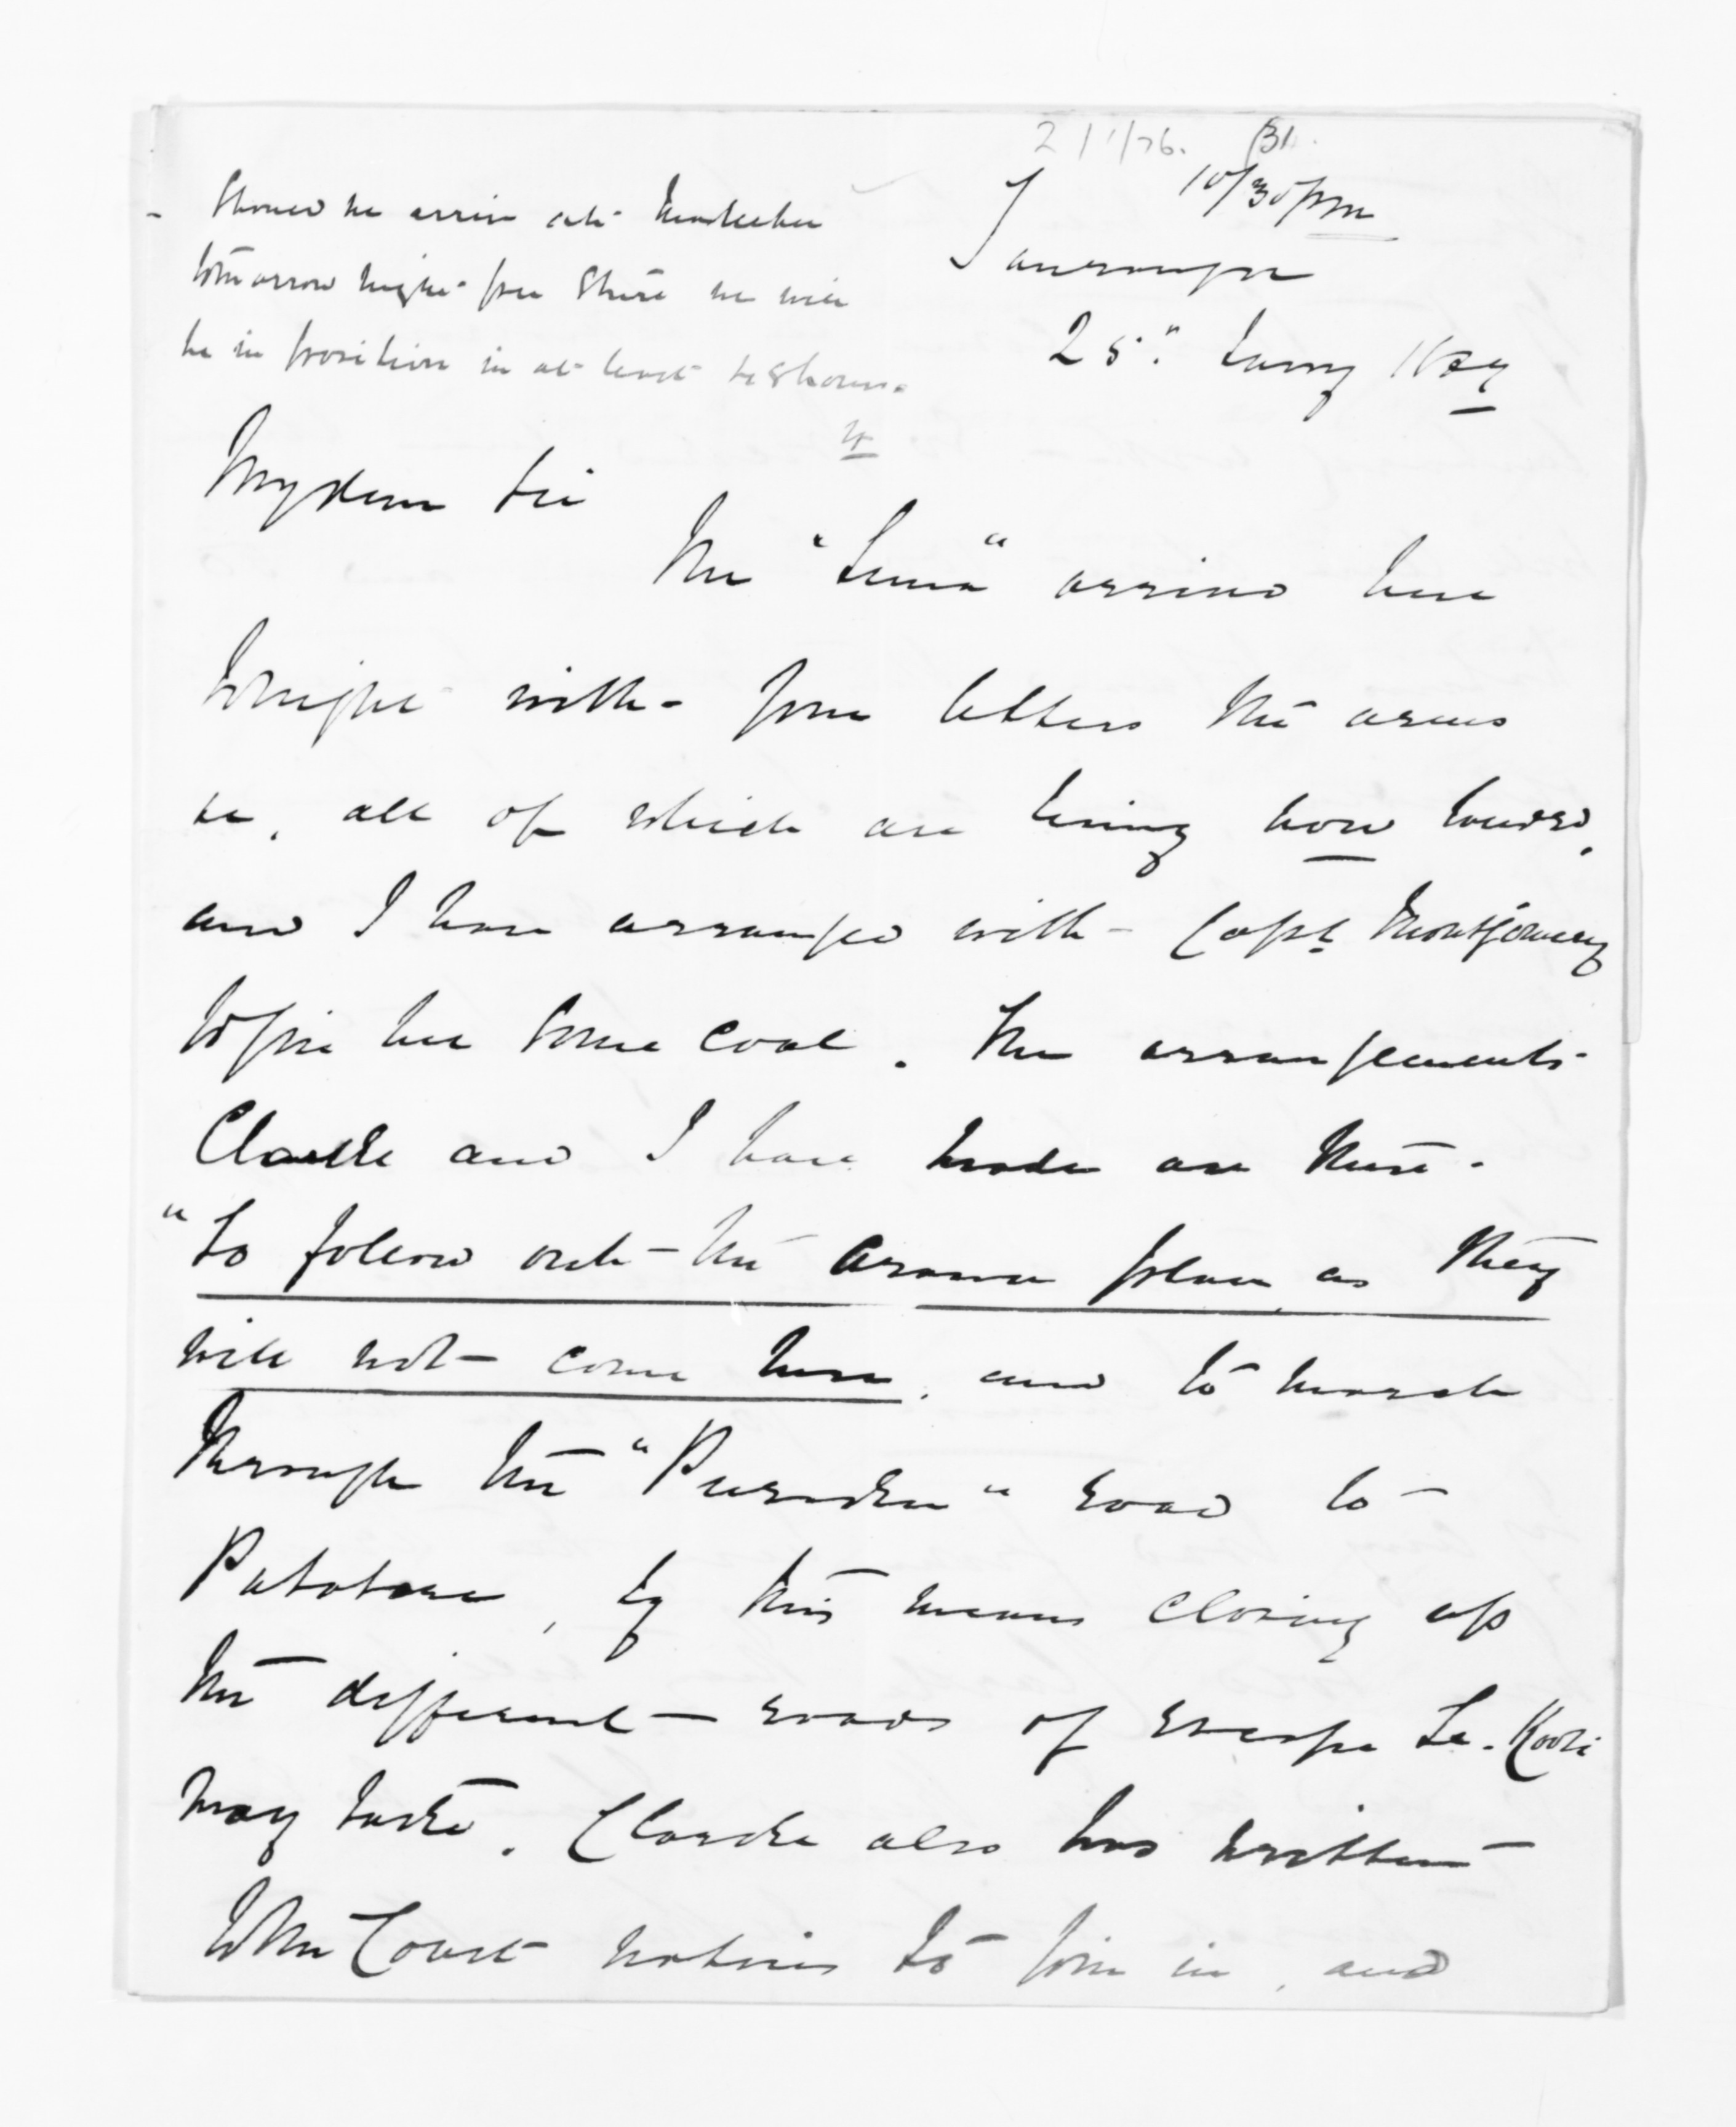 21/1/76. (31.
10/30 pm
Tauranga
25th Jany 1870
- Should he arrive at
tomorrow night from there he will
be in position in at least 48 hours.
4
My dear Sir
The "Luna" arrived here
tonight with your letters the arms
&c, all of which are being now landed,
and I have arranged with Capt Montgomery
to give her some coal. The arrangements
Clarke and I have made are these.
"To follow out the Arawa plan, as they
will not come here, and to march
through the "                " road to
Patatere, by this means closing up
the different roads of escape Te Kooti
may take. Clarke also has written
to the Coast natives to join in, and